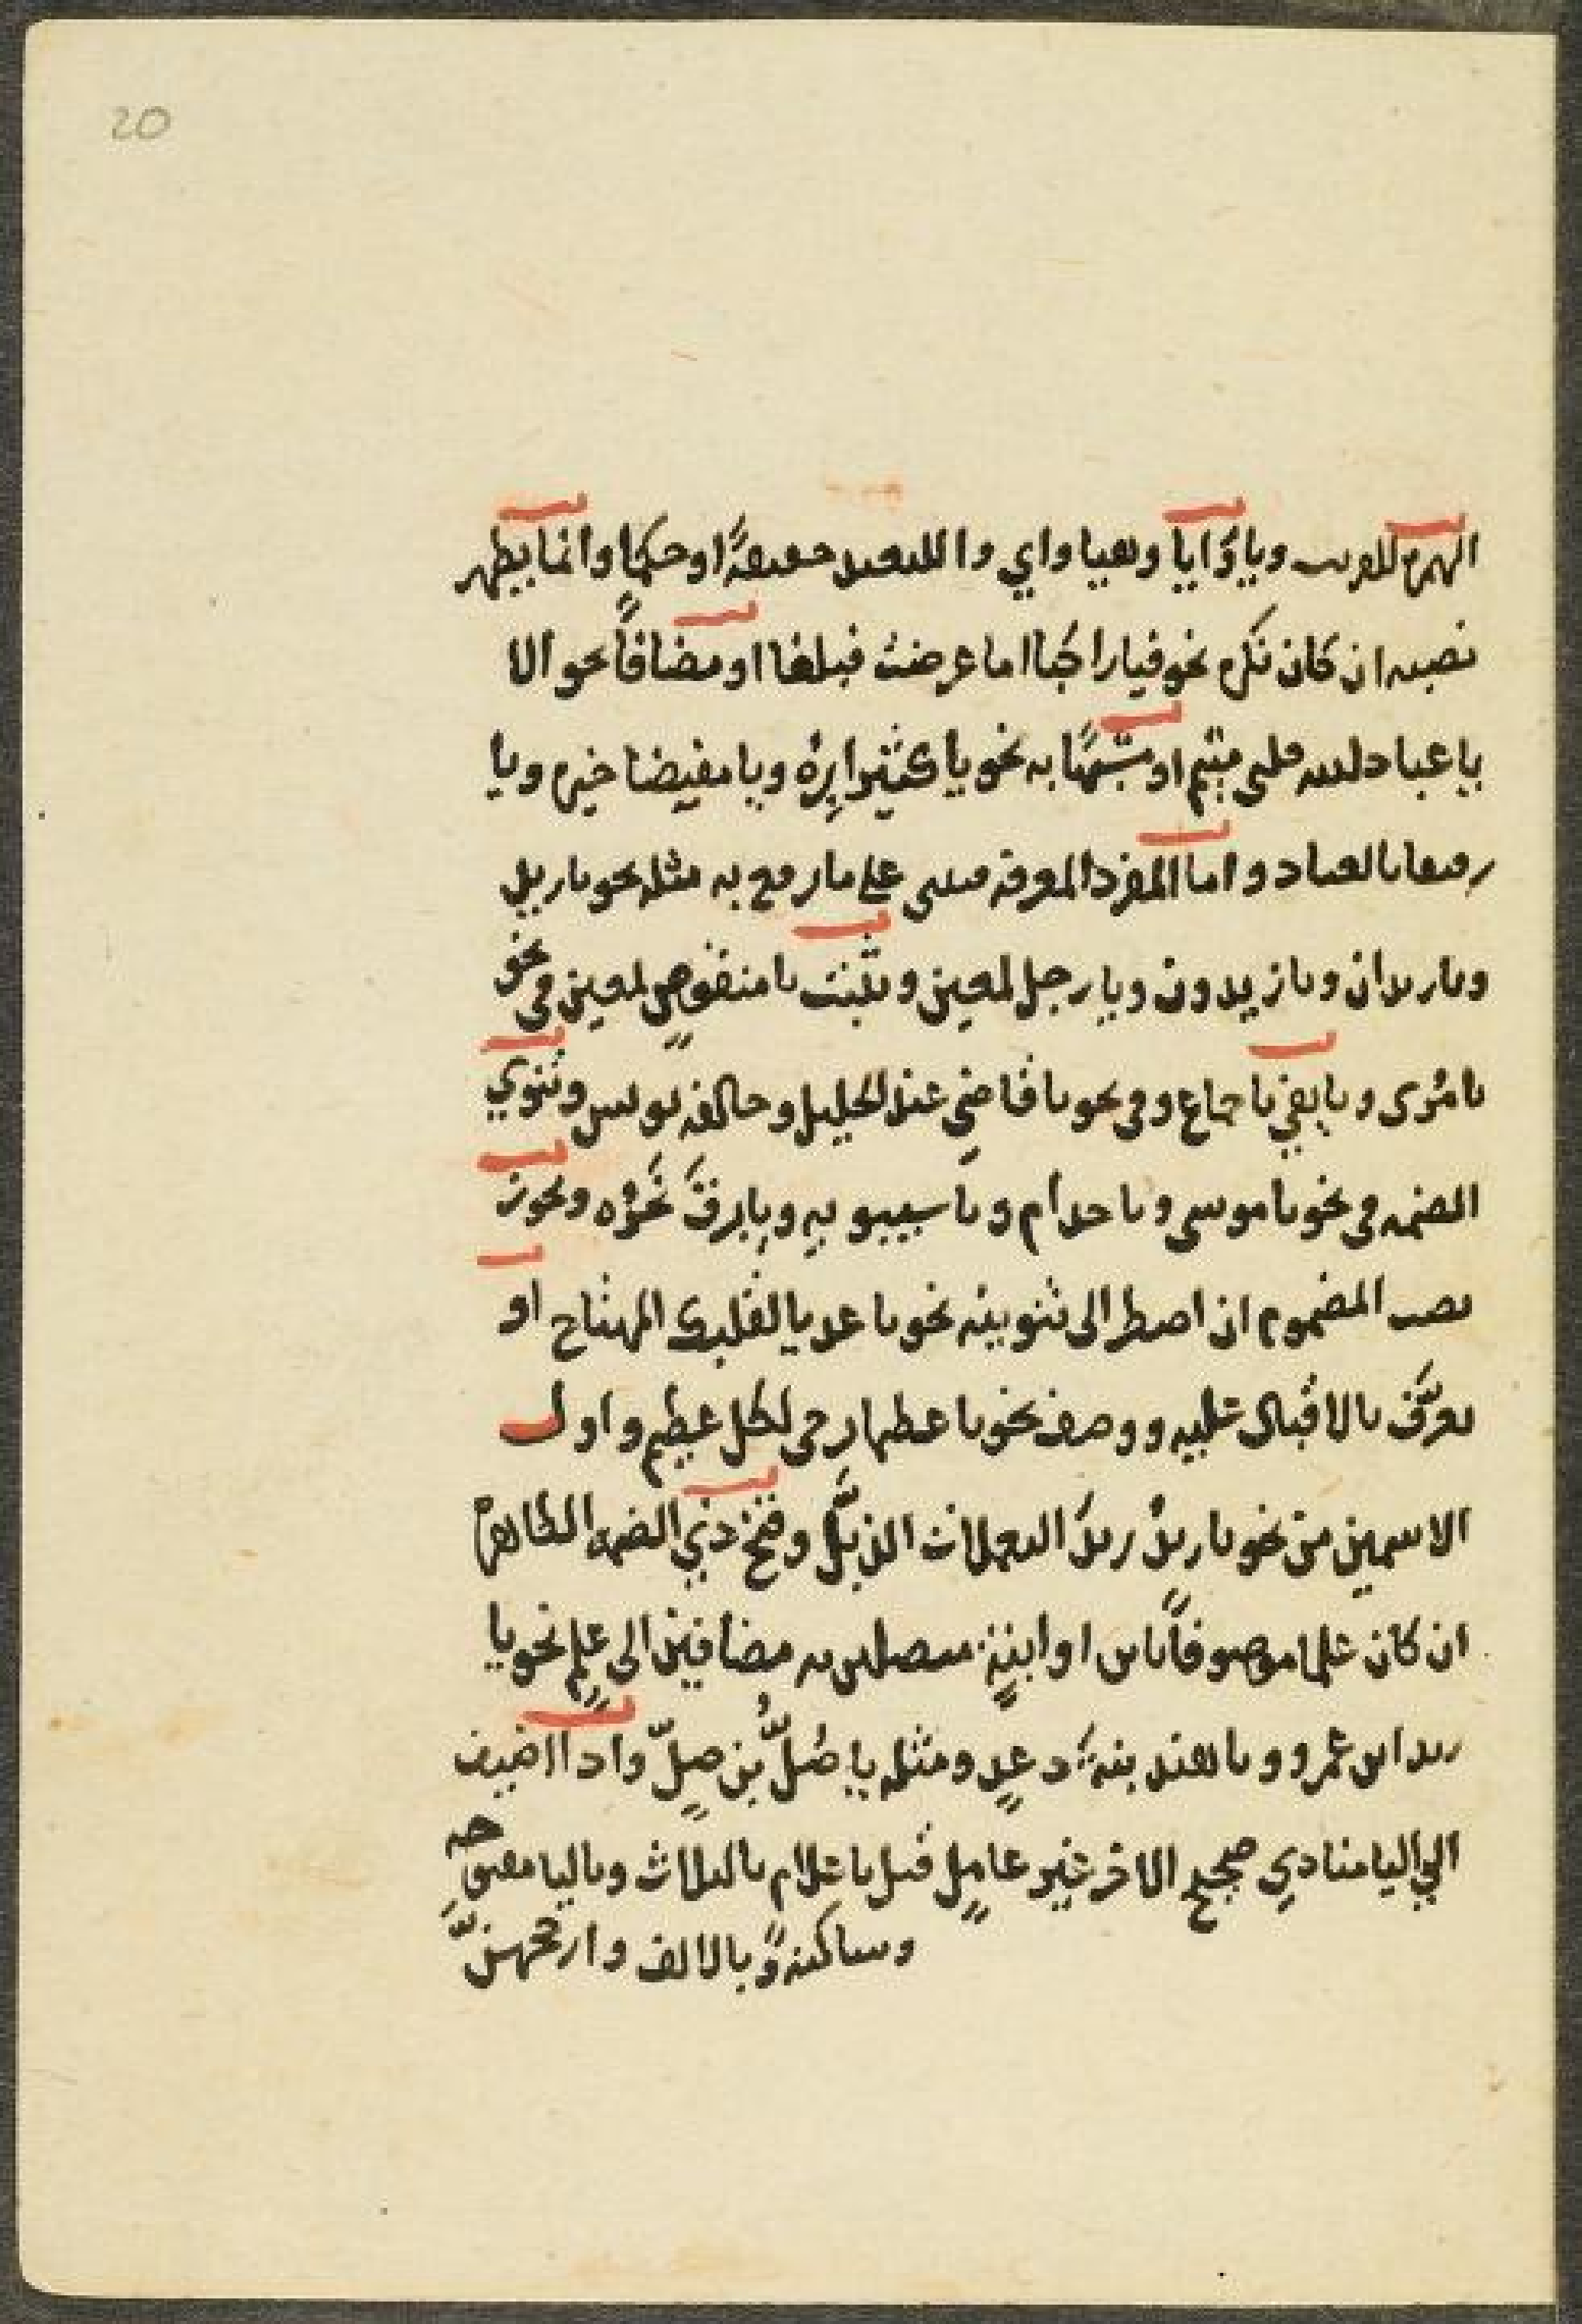 20
الهمزة للقريب ويا وأيا وهيا واي وا للبعيد حقيقةً او حكما وانما يظهر
نصبه ان كان نكرة نحو فيا راكبا اما عرضت فبلغا او مضافًا نحو الا
يا عباد الله قلبى متيم او مشبَّهًا به نحو يا كثيرا بِرُّه ويا مفيضا خيره ويا
رفيقا بالعباد واما المفرد المعرفة فيبنى على ما رفع به مثله نحو يا زيد
ويا زيدان ويا زيدون ويا رجل لمعين وتثبت يا منقوصٍ لمعين فى نحو
يا مُرى ويا يفى باجماع وفى نحو يا قاضى عند الخليل وخالفه يونس وتنوي
الضمة فى نحو يا موسى ويا حذام ويا سيبويه ويا برقَ نَحْرُه ويجوز
نصب المضموم ان اضطر الى تنوينه نحو يا عديا لقلبك المهتاج او
تعرَّف بالاقبال عليه ووصف نحو يا عظيما يرجى لكل عظيم واول
الاسمين من نحو يا زيدُ زيدَ اليعملات الذبَّل وفتح ذي الضمة الظاهرة
ان كان علما موصوفاً بابن او ابنةٍ متصلين به مضافين الى علم نحو يا
زيد ابن عمرو ويا هند بنة دعدٍ ومثله يا ضُلُّ بن ضلٍّ واذا اضيف
الي اليا منادي صحيح الاخر غير عاملٍ قيل يا غلام بالثلاث وباليا مفتوحةً
وساكنةً وبالالف وارجحهنَّ